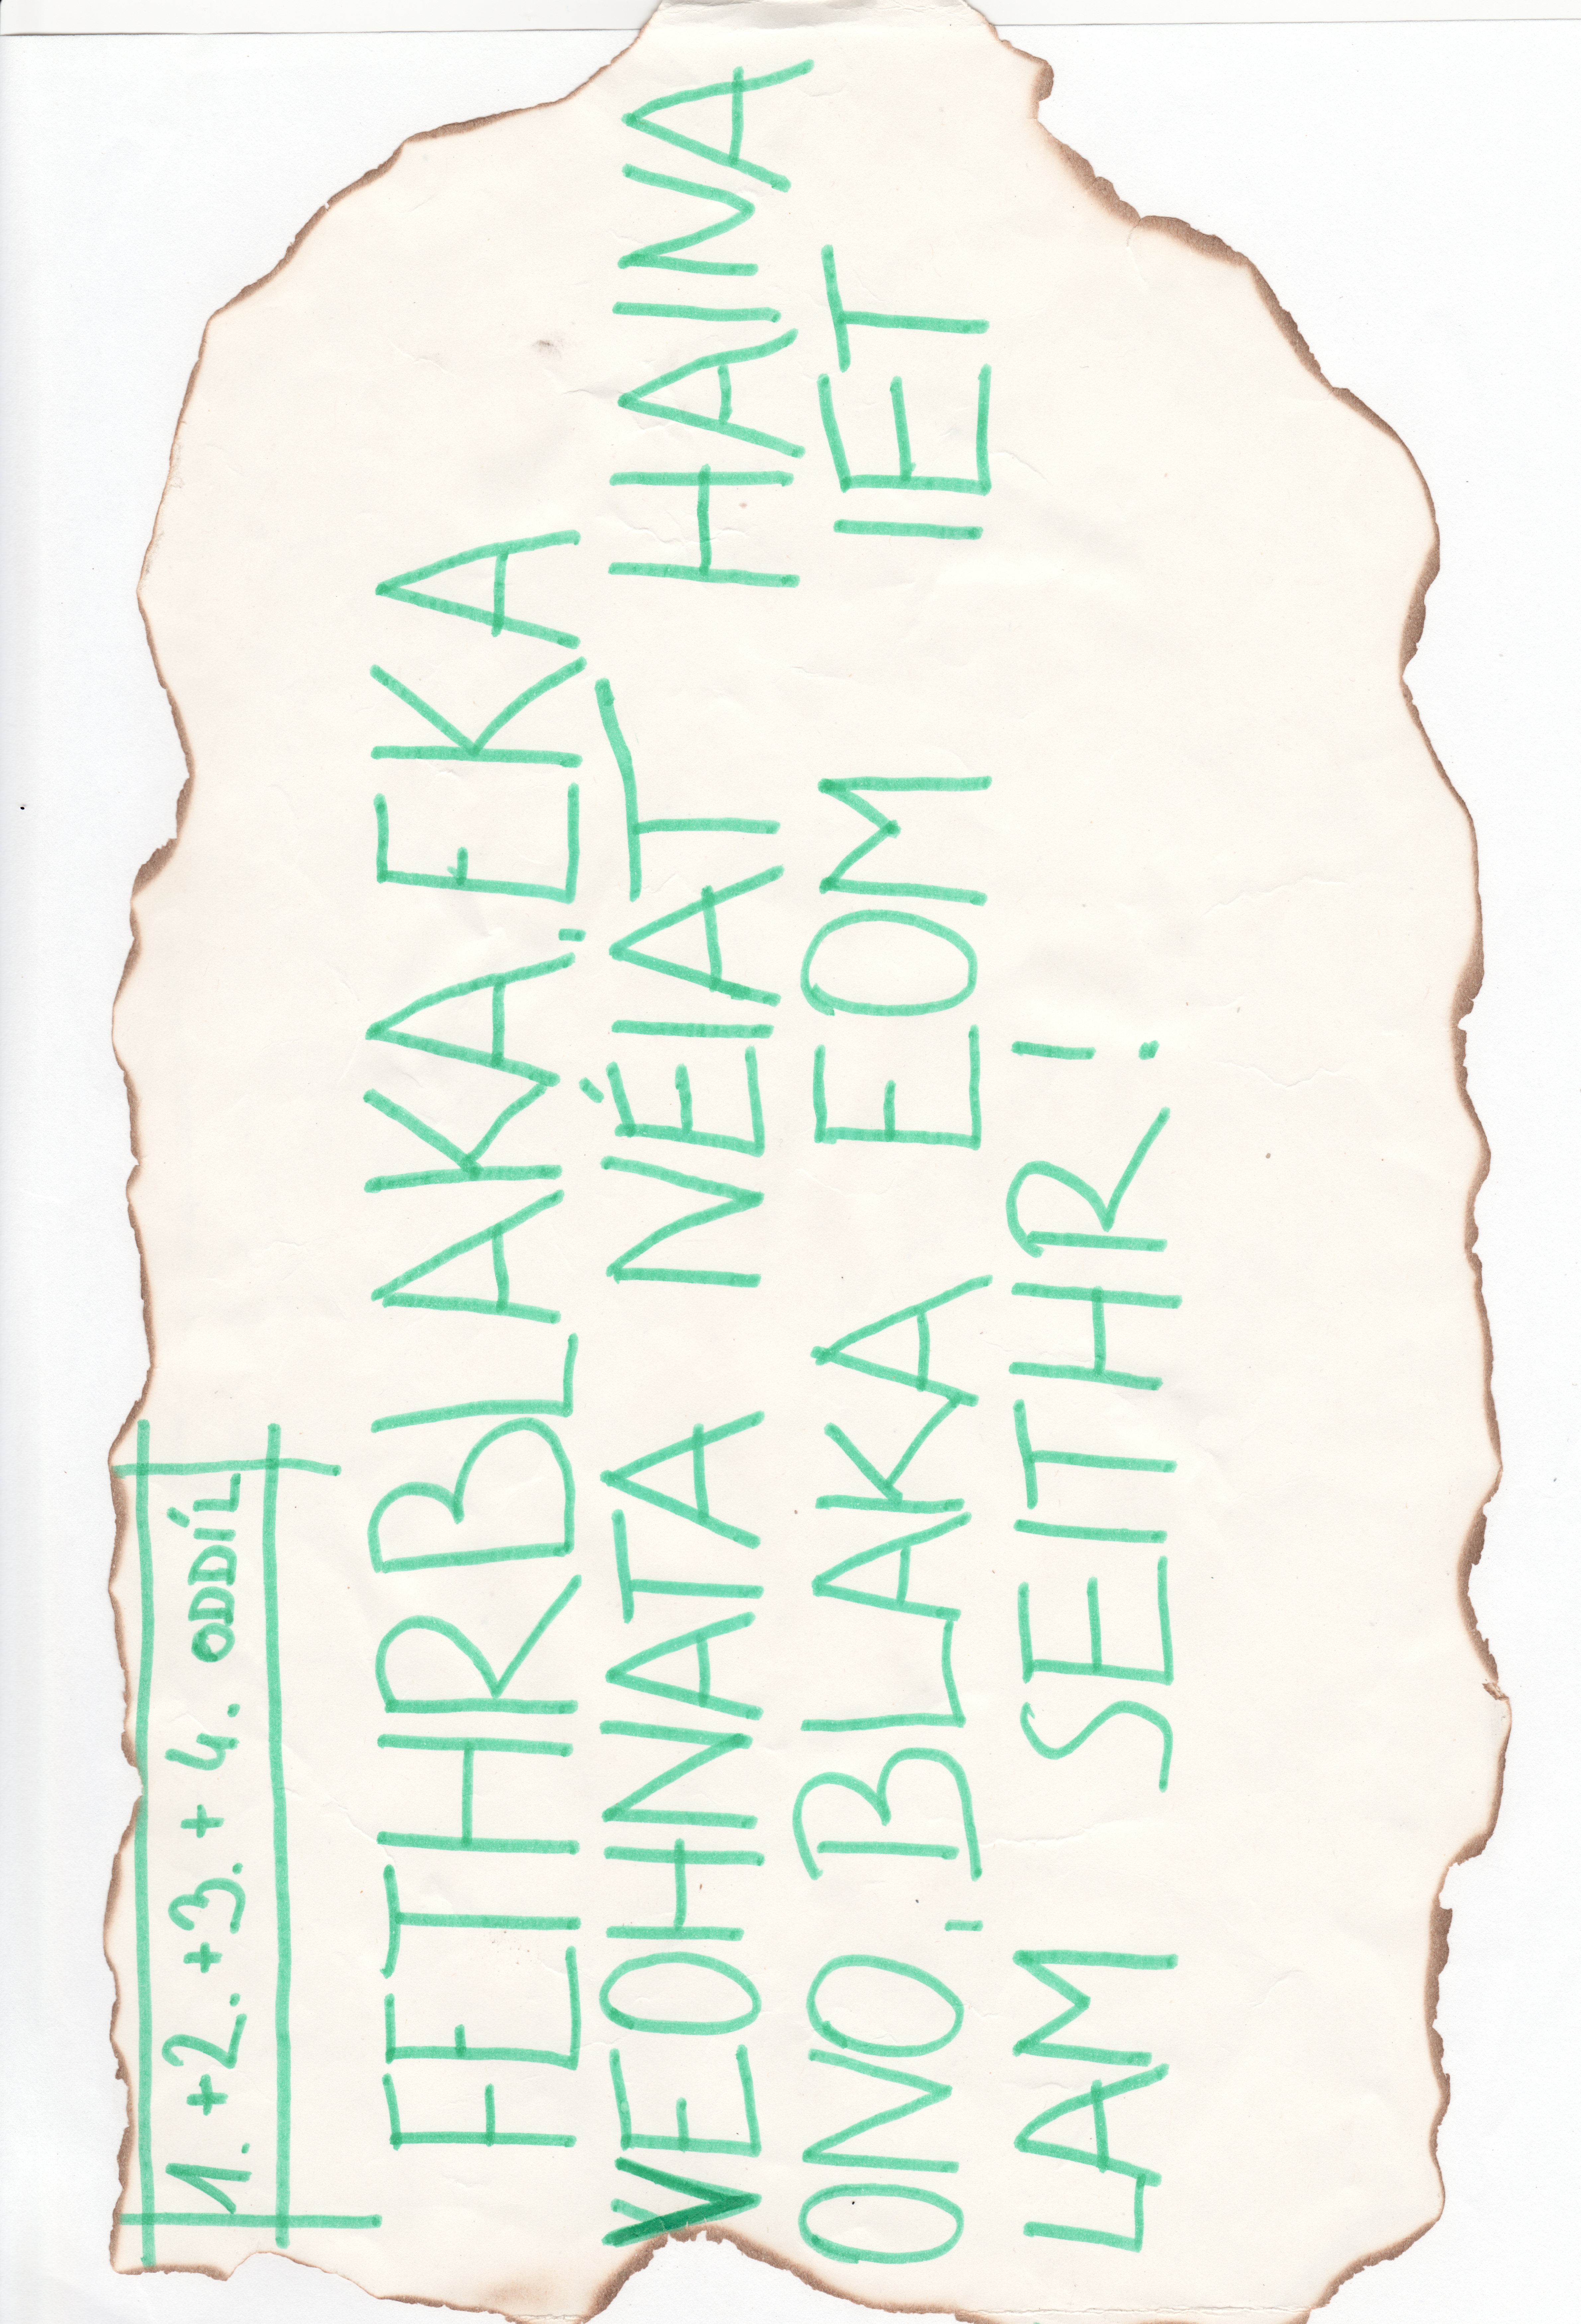 1. +2. +3. + 4. ODDÍL
FETHRBLAKA, EKA
VEOHNATA NÉIAT HAINA
ONO, BLAKA EOM IET
LAM SEITHR!